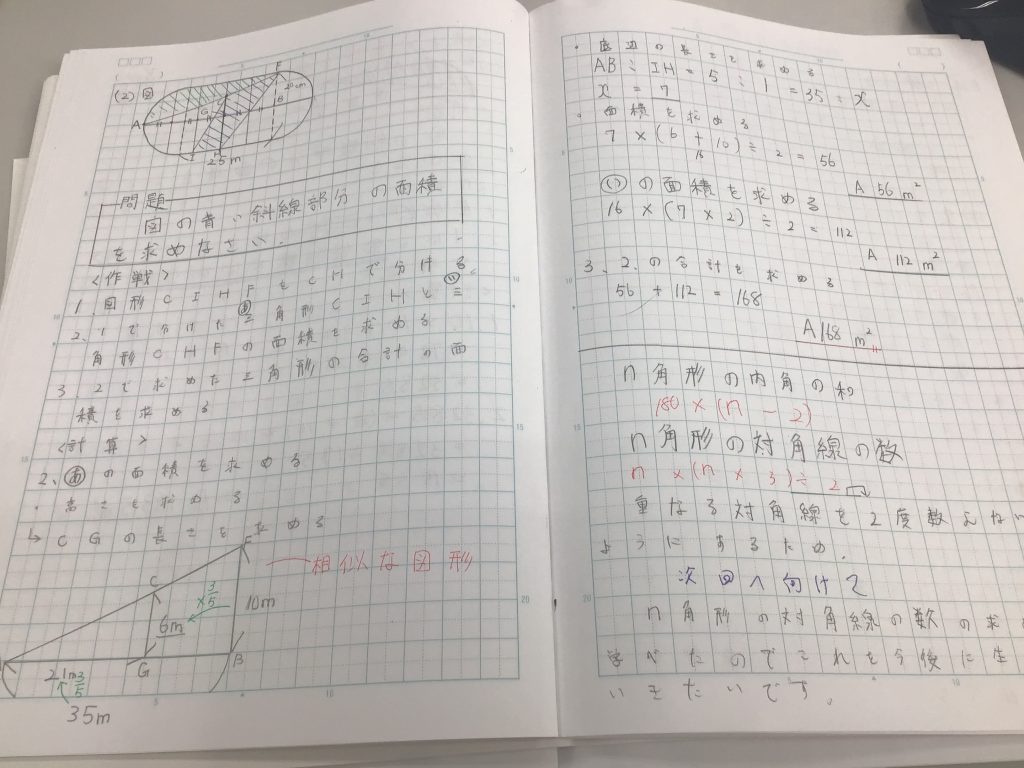 (2) 図
F
C
20cm
G
B
A
25m
問題
図の青い斜線部分の面積
を求めなさい.
<作戦>
1. 図形CIHFをCHで分ける。
2. 1で分けた三角形CIHと三
あ
い
角形CHFの面積を求める
3. 2で求めた三角形の合計の面
積を求める
<計算>
2、あの面積を求める
・高さを求める
↳ CGの長さを求める
F
相似な図形
C
×3/5
10m
6m
21m
3/5
G
B
35m
・底辺の長さを求める
AB:IH=5:1=35:x
x=7
・面積を求める
7×(6+10)÷2=56
16
A 56m²
いの面積を求める
16×(7×2)÷2=112
A 112m²
3、2、の合計を求める
56+112=168
A 168m²
n角形の内角の和
180×(n-2)
n角形の対角線の数
n×(n×3)÷2
重なる対角線を2度数えない
ようにするため.
次回へ向けて
n角形の対角線の数の求
学べたのでこれを今後に生
いきたいです。